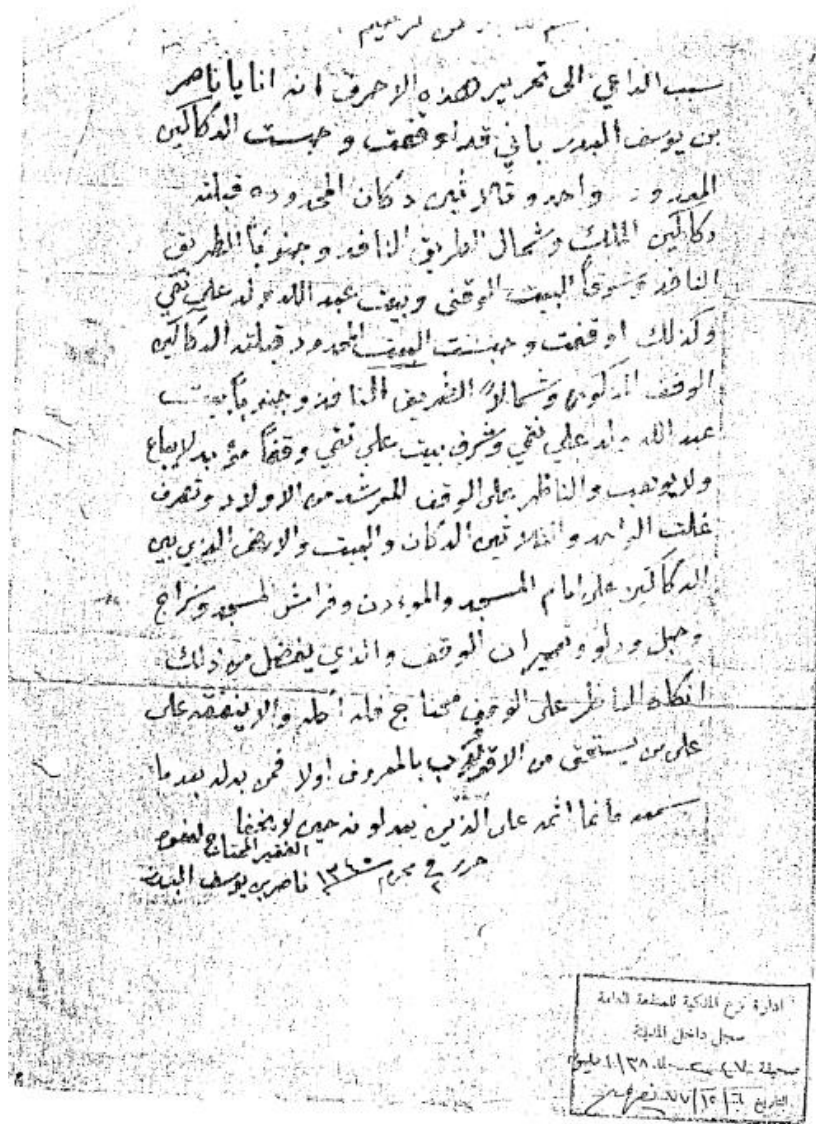 بسم الله الرحمن الرحيم
سبب الداعي الى تحرير هذه الاحرف انه انا يا ناصر
بن يوسف البدر باني قد اوقفت و حبست الدكاكين
المعدود واحد و ثلاثين دكان المحدوده قبلته
دكاكين الملك وشمال الطريق النافد وجنوباً الطريق
النافد وشرقاً البيت الوقفى وبيت عبد الله ولد علي نقي
وكذلك اوقفت و حبست البيت المحدود قبلته الدكاكين
الوقف المذكوره وشمالاً الطريق النافد وجنوباً بيت
عبد الله ولد علي نقي وشرق بيت علي نقي وقفاً مؤبد لايباع
ولا يوهب والناظر على الوقف المرشد من الاولاد وتصرف
غلت الواحد والثلاثين الدكان والبيت والارض الذي بين
الدكاكين على امام المسجد والموءدن وفراش المسجد وسراج
وحبل ودلو وتعميران الوقف والذي يفضل من ذلك
انكان الناظر على الوقف محتاج فله أكله والا ينفقه على
على من يستحق من الاقرب بالمعروف اولا فمن بدله بعد ما
سمعه فانما اثمه على الذين يبدلونه حين لا يخفا
الفقير المحتاج لعفوه
حرر في محرم ١٣٤٥ ناصر بن يوسف البدر
ادارة نزع الملكية للمنفعة العامة
سجل داخل المدينة
صحيفة
التاريخ